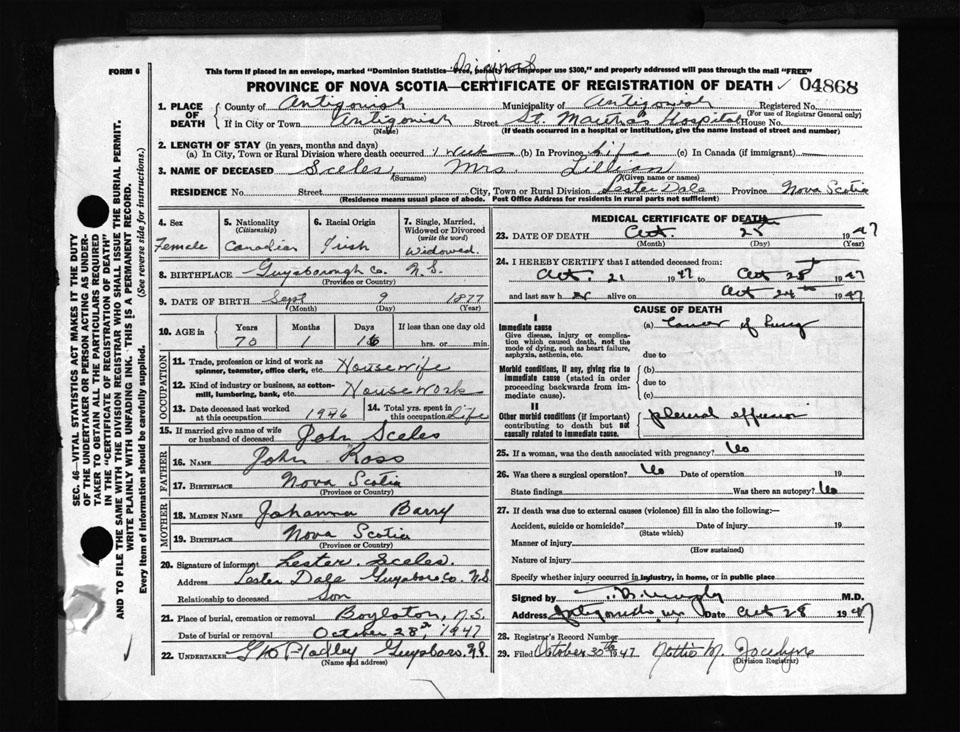 Original
FORM 6
This form if placed in an envelope, marked "Dominion Statistics—Free, penalty for improper use $300," and properly addressed will pass through the mail "FREE"
PROVINCE OF NOVA SCOTIA—CERTIFICATE OF REGISTRATION OF DEATH ✓ 04868
1. PLACE OF DEATH { County of Antigonish Municipality of Antigonish Registered No.
(For use of Registrar General only)
If in City or Town Antigonish Street St. Martha's Hospital House No.
(Name) (If death occurred in a hospital or institution, give the name instead of street and number)
2. LENGTH OF STAY (in years, months and days)
(a) In City, Town or Rural Division where death occurred 1 Week (b) In Province Life (c) In Canada (if immigrant)
3. NAME OF DECEASED Sceles, Mrs. Lillian
(Surname) (Given name or names)
RESIDENCE No. Street City, Town or Rural Division Lester Dale Province Nova Scotia
(Residence means usual place of abode. Post Office Address for residents in rural parts not sufficient)
4. Sex Female
5. Nationality (Citizenship) Canadian
6. Racial Origin Irish
7. Single, Married, Widowed or Divorced (write the word) Widowed
8. BIRTHPLACE Guysborough Co. N.S.
(Province or Country)
9. DATE OF BIRTH Sept 9 1877
(Month) (Day) (Year)
10. AGE in Years Months Days If less than one day old
70 1 hrs. or min.
OCCUPATION
11. Trade, profession or kind of work as spinner, teamster, office clerk, etc. Housewife
12. Kind of industry or business, as cotton-mill, lumbering, bank, etc. Housework
13. Date deceased last worked at this occupation 1946
14. Total yrs. spent in this occupation life
15. If married give name of wife or husband of deceased John Sceles
FATHER
16. NAME John Ross
17. BIRTHPLACE Nova Scotia
(Province or Country)
MOTHER
18. MAIDEN NAME Johanna Barry
19. BIRTHPLACE Nova Scotia
(Province or Country)
20. Signature of informant Lester Sceles.
Address Lester Dale Guysboro Co. N.S.
Relationship to deceased Son
21. Place of burial, cremation or removal Boylston, N.S.
Date of burial or removal October 28, 1947
22. UNDERTAKER Guysboro. N.S.
(Name and address)
MEDICAL CERTIFICATE OF DEATH
23. DATE OF DEATH Oct. 25th 1947
(Month) (Day) (Year)
24. I HEREBY CERTIFY that I attended deceased from:
Oct. 21 1947 to Oct 1947
and last saw alive on Oct 24th 1947
CAUSE OF DEATH
I
Immediate cause
Give disease, injury or complication which caused death, not the mode of dying, such as heart failure, asphyxia, asthenia, etc.
(a) Cancer of Lung
due to
Morbid conditions, if any, giving rise to immediate cause (stated in order proceeding backwards from immediate cause).
(b)
due to
(c)
II
Other morbid conditions (if important) contributing to death but not causally related to immediate cause.
pleural effusion
25. If a woman, was the death associated with pregnancy? No
26. Was there a surgical operation? No Date of operation 19
State findings Was there an autopsy? No
27. If death was due to external causes (violence) fill in also the following:—
Accident, suicide or homicide? Date of injury 19
(State which)
Manner of injury
(How sustained)
Nature of injury
Specify whether injury occurred in industry, in home, or in public place
Signed by Murphy M.D.
Address Antigonish Date Oct 28 1947
28. Registrar's Record Number
29. Filed October 30th 1947 Nettie M. Jocelyne
(Division Registrar)
SEC. 46—VITAL STATISTICS ACT MAKES IT THE DUTY
OF THE UNDERTAKER OR PERSON ACTING AS UNDER-
TAKER TO OBTAIN ALL THE PARTICULARS REQUIRED
IN THE "CERTIFICATE OF REGISTRATION OF DEATH"
AND TO FILE THE SAME WITH THE DIVISION REGISTRAR WHO SHALL ISSUE THE BURIAL PERMIT.
WRITE PLAINLY WITH UNFADING INK. THIS IS A PERMANENT RECORD.
Every item of Information should be carefully supplied. (See reverse side for instructions.)